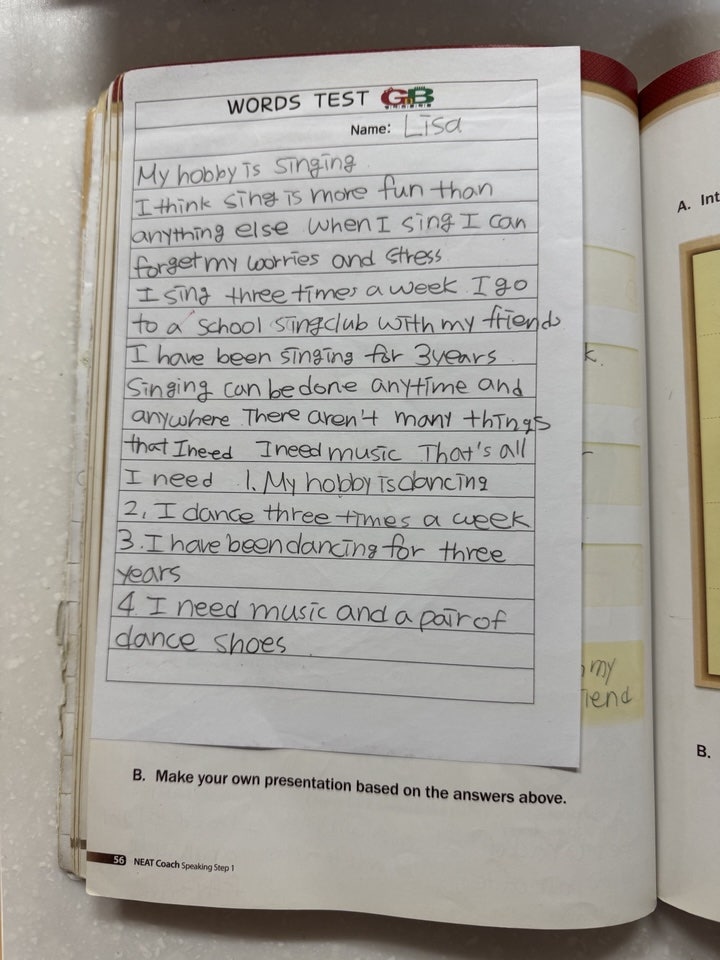 WORDS TEST GnB
Name: Lisa
My hobby is singing
I think sing is more fun than
anything else when I sing I can
forget my worries and stress
I sing three times a week I go
to a school singclub with my friends
I have been singing for 3years
Singing can be done anytime and
anywhere There aren't many things
that I need I need music That's all
I need 1. My hobby is dancing
2. I dance three times a week
3. I have been dancing for three
years
4. I need music and a pair of
dance shoes
k.
my
iend
B. Make your own presentation based on the answers above.
56 NEAT Coach Speaking Step 1
A. Int
B.